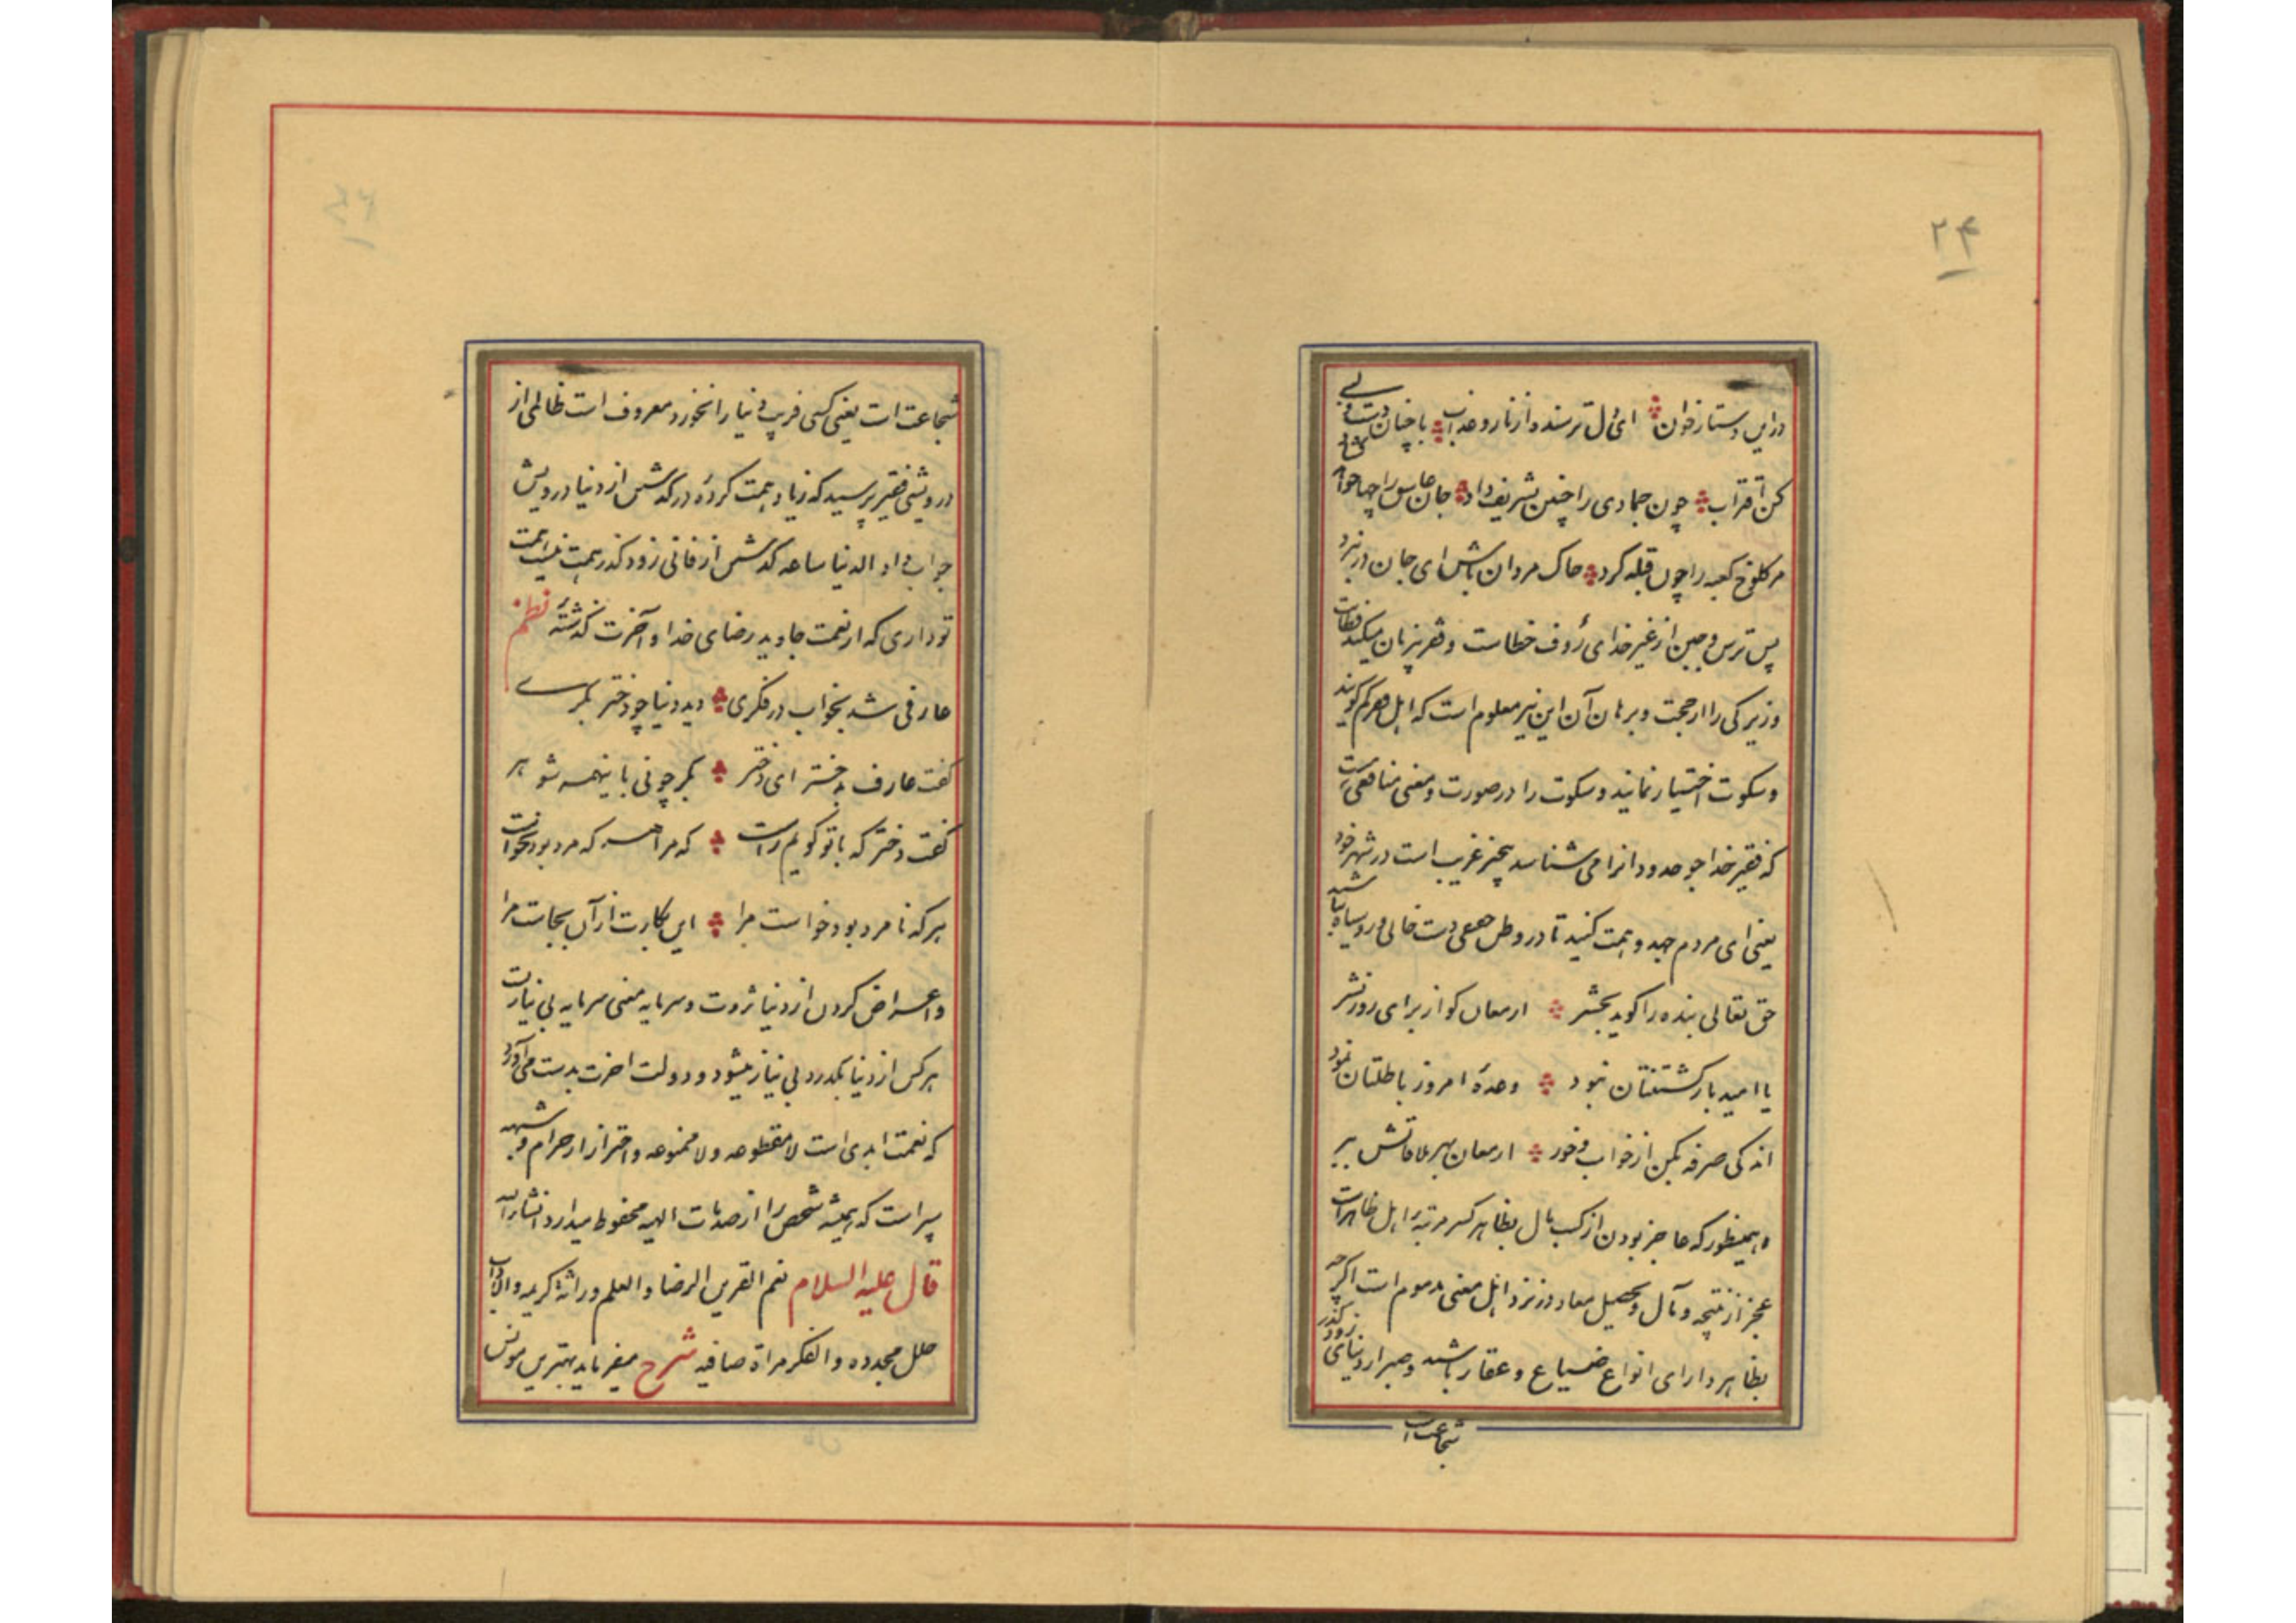 ۲۴
در این دستار خوان ای دل ترسنده از نار و عذاب با چنان دست و لبی
کن اقتراب چون جمادی را چنین تشریف داد جان عاشق را چها خواهد گشاد
مر کلوخ کعبه را چون قبله کرد خاک مردان باش ای جان در نبرد
پس ترس و جبن از غیر خدای رؤف خطاست و فقر بزبان میکند فطانت
و زیرکی را از حجت و برهان آن این نیز معلوم است که اهل فقر کم گویند
و سکوت اختیار نمایند و سکوت را در صورت و معنی منافعی است
که فقیر خدا جو حدود آنرا می شناسد عجز غریب است در شهر خود
یعنی ای مردم جهد و همت کنید تا در وطن دست خالی و رو سیاه نباشید
حق تعالی بنده را گوید بحشر ارمغان کو از برای روز نشر
یا امید باز گشتنتان نبود وعدهٔ امروز باطلتان نمود
اندکی صرفه بکن از خواب و خور ارمغان بهر ملاقاتش ببر
و همینطور که عاجز بودن از کسب مال بظاهر کسر مرتبه اهل ظاهر است
عجز از نتیجه و مآل و تحصیل معاد در نزد اهل معنی مذموم است اگرچه
بظاهر دارای انواع ضیاع و عقار باشد و صبر از دنیای زود گذر
شجاعت است
شجاعت است یعنی کسی فریب دنیا را نخورد معروف است ظالمی از
درویشی فقیر پرسید که زیاد همت کردهٔ در گذشتن از دنیا درویش
جواب داد الدنیا ساعه گذشتن از فانی زود گذر همت نیست همت
تو داری که از نعمت جاوید رضای خدا و آخرت گذشتهٔ نظم
عارفی شد بخواب در فکری دید دنیا چو دختر بکری
گفت عارف بدختر ای دختر بکر چونی با ینهمه شوهر
گفت دختر که با تو گویم راست که مرا هر که مرد بود نخواست
هر که نامرد بود خواست مرا این بکارت از آن بجاست مرا
و اعراض کردن از دنیا ثروت و سرمایه معنی سرمایه بی نیازیست
هر کس از دنیا بگذرد بی نیاز میشود و دولت اخرت بدست می آورد
که نعمت ابدی است لا مقطوعه و لا ممنوعه و احتراز از حرام و شبهه
سپر است که همیشه شخص را از صدمات الهیه محفوظ میدارد انشاء الله
قال علیه السلام نعم القرین الرضا و العلم وراثة کریمه و الاداب
حلل مجدده و الفکر مرآة صافیه شرح میفرماید بهترین مونس